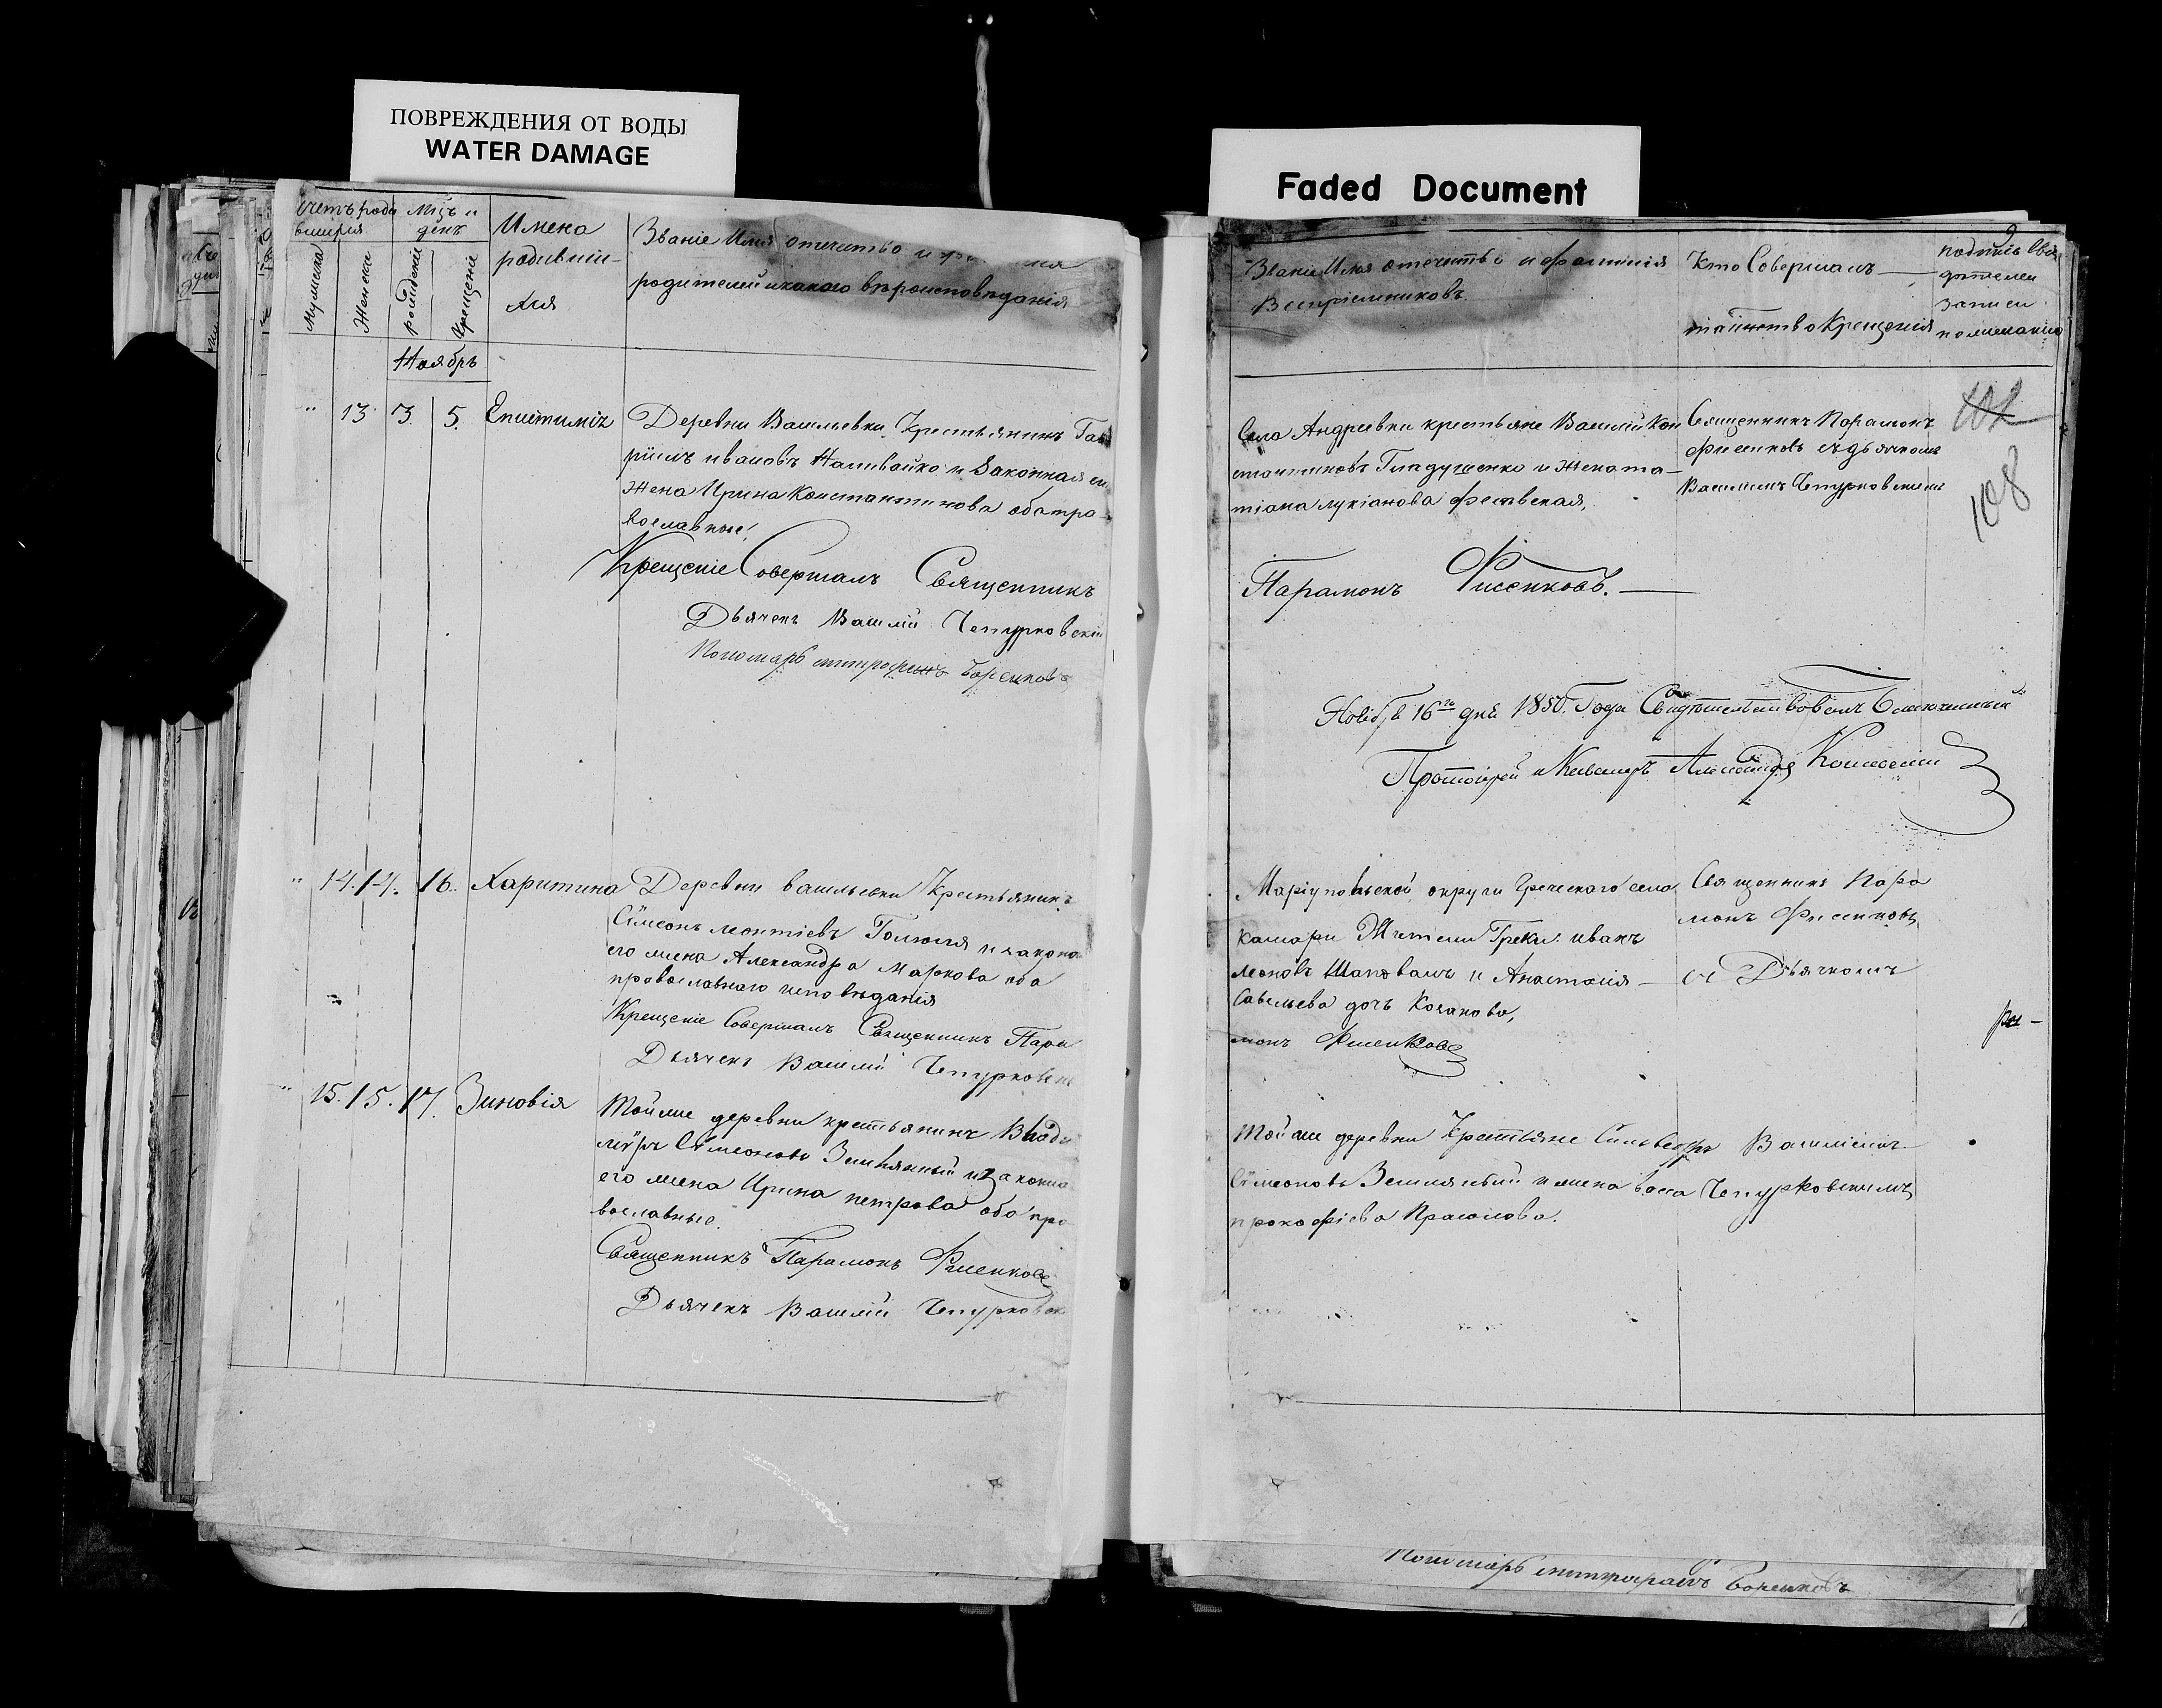 ПОВРЕЖДЕНИЯ ОТ ВОДЫ
WATER DAMAGE
Faded Document
счетъ роди
вшихся
Мцъ и
день
Имена
родивших-
ся
Званіе Имя отечество и
родителей и какого вѣроисповѣданія
Мужеска
Женска
рожденіе
Крещеніе
Ноябрь
" 13 3. 5.
Деревни Васильевки Крестьянинъ Гав
ріилъ ивановъ Наливайко и Законная ег
жена Ирина Константинова оба пра-
вославные,
Крещеніе Совершалъ Священникъ
Дьячекъ Василій Чепурковскій
Пономарь митрофанъ
" 14. 14. 16. Харитина
Деревни васильевки Крестьянинъ
Сѵмеонъ леонтіевъ и законна
его жена Александра Маркова оба
православнаго исповѣданія
Крещеніе Совершалъ Священникъ Пара
Дьячекъ Василій Чепурковск
" 15. 15. 17. Зиновія
Тойже деревни крестьянинъ Влади
міръ Сѵмеоновъ Земляный и законна
его жена Ирина петрова оба пра
вославные.
Священникъ Парамонъ Фисенковъ
Дьячекъ Василій Чепурковск
9
Званіе Имя отечество и фамилія
Воспріемниковъ
Кто Совершалъ
таинство Крещенія
подпись Сви
дѣтелей
записи
по желанію
Села Андреевки крестьяне Василій Кон
стантиновъ Гладушенко и жена та-
тіана лукіанова
Священникъ Парамонъ
Фисенковъ съ дьячкомъ
Василіемъ Чепурковскимъ
102
108
Парамонъ Фисенковъ.
16го дня 1850. Года Свидѣтельствовалъ Благочинный
Протоіерей и Кавалеръ
Маріупольской округи Греческаго села
камари Жители Греки иванъ
леоновъ Шаповалъ и Анастасія
Савельева дочь
монъ Фисенковъ
Священникъ Пара
монъ Фисенковъ
съ Дьячкомъ
Тойже деревни Крестьяне Сильвестръ
Сѵмеоновъ Земляный и жена васса
прокофіева
Василіемъ
Чепурковскимъ
Пономарь митрофанъ